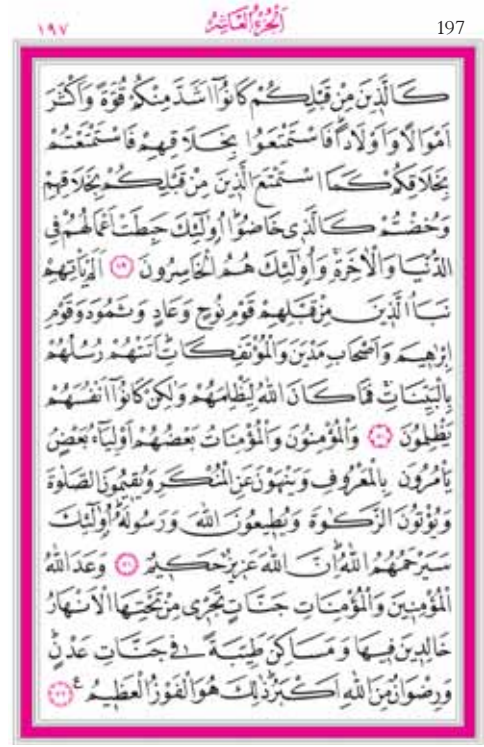 ١٩٧ اَلْجُزْءُ الْعَاشِرُ 197
كَالَّذِينَ مِنْ قَبْلِكُمْ كَانُٓوا اَشَدَّ مِنْكُمْ قُوَّةً وَاَكْثَرَ
اَمْوَالًا وَاَوْلَادًاۜ فَاسْتَمْتَعُوا بِخَلَاقِهِمْ فَاسْتَمْتَعْتُمْ
بِخَلَاقِكُمْ كَمَا اسْتَمْتَعَ الَّذِينَ مِنْ قَبْلِكُمْ بِخَلَاقِهِمْ
وَخُضْتُمْ كَالَّذِي خَاضُواۜ اُو۬لٰٓئِكَ حَبِطَتْ اَعْمَالُهُمْ فِي
الدُّنْيَا وَالْاٰخِرَةِۚ وَاُو۬لٰٓئِكَ هُمُ الْخَاسِرُونَ ﴿٦٩﴾ اَلَمْ يَأْتِهِمْ
نَبَاُ الَّذِينَ مِنْ قَبْلِهِمْ قَوْمِ نُوحٍ وَعَادٍ وَثَمُودَ وَقَوْمِ
اِبْرٰهِيمَ وَاَصْحَابِ مَدْيَنَ وَالْمُؤْتَفِكَاتِۜ اَتَتْهُمْ رُسُلُهُمْ
بِالْبَيِّنَاتِۚ فَمَا كَانَ اللّٰهُ لِيَظْلِمَهُمْ وَلٰكِنْ كَانُٓوا اَنْفُسَهُمْ
يَظْلِمُونَ ﴿٧٠﴾ وَالْمُؤْمِنُونَ وَالْمُؤْمِنَاتُ بَعْضُهُمْ اَوْلِيَٓاءُ بَعْضٍۢ
يَأْمُرُونَ بِالْمَعْرُوفِ وَيَنْهَوْنَ عَنِ الْمُنْكَرِ وَيُقِيمُونَ الصَّلٰوةَ
وَيُؤْتُونَ الزَّكٰوةَ وَيُطِيعُونَ اللّٰهَ وَرَسُولَهُۜ اُو۬لٰٓئِكَ
سَيَرْحَمُهُمُ اللّٰهُۜ اِنَّ اللّٰهَ عَزِيزٌ حَكِيمٌ ﴿٧١﴾ وَعَدَ اللّٰهُ
الْمُؤْمِنِينَ وَالْمُؤْمِنَاتِ جَنَّاتٍ تَجْرِي مِنْ تَحْتِهَا الْاَنْهَارُ
خَالِدِينَ فِيهَا وَمَسَاكِنَ طَيِّبَةً فِي جَنَّاتِ عَدْنٍۜ
وَرِضْوَانٌ مِنَ اللّٰهِ اَكْبَرُۜ ذٰلِكَ هُوَ الْفَوْزُ الْعَظِيمُ ع ﴿٧٢﴾